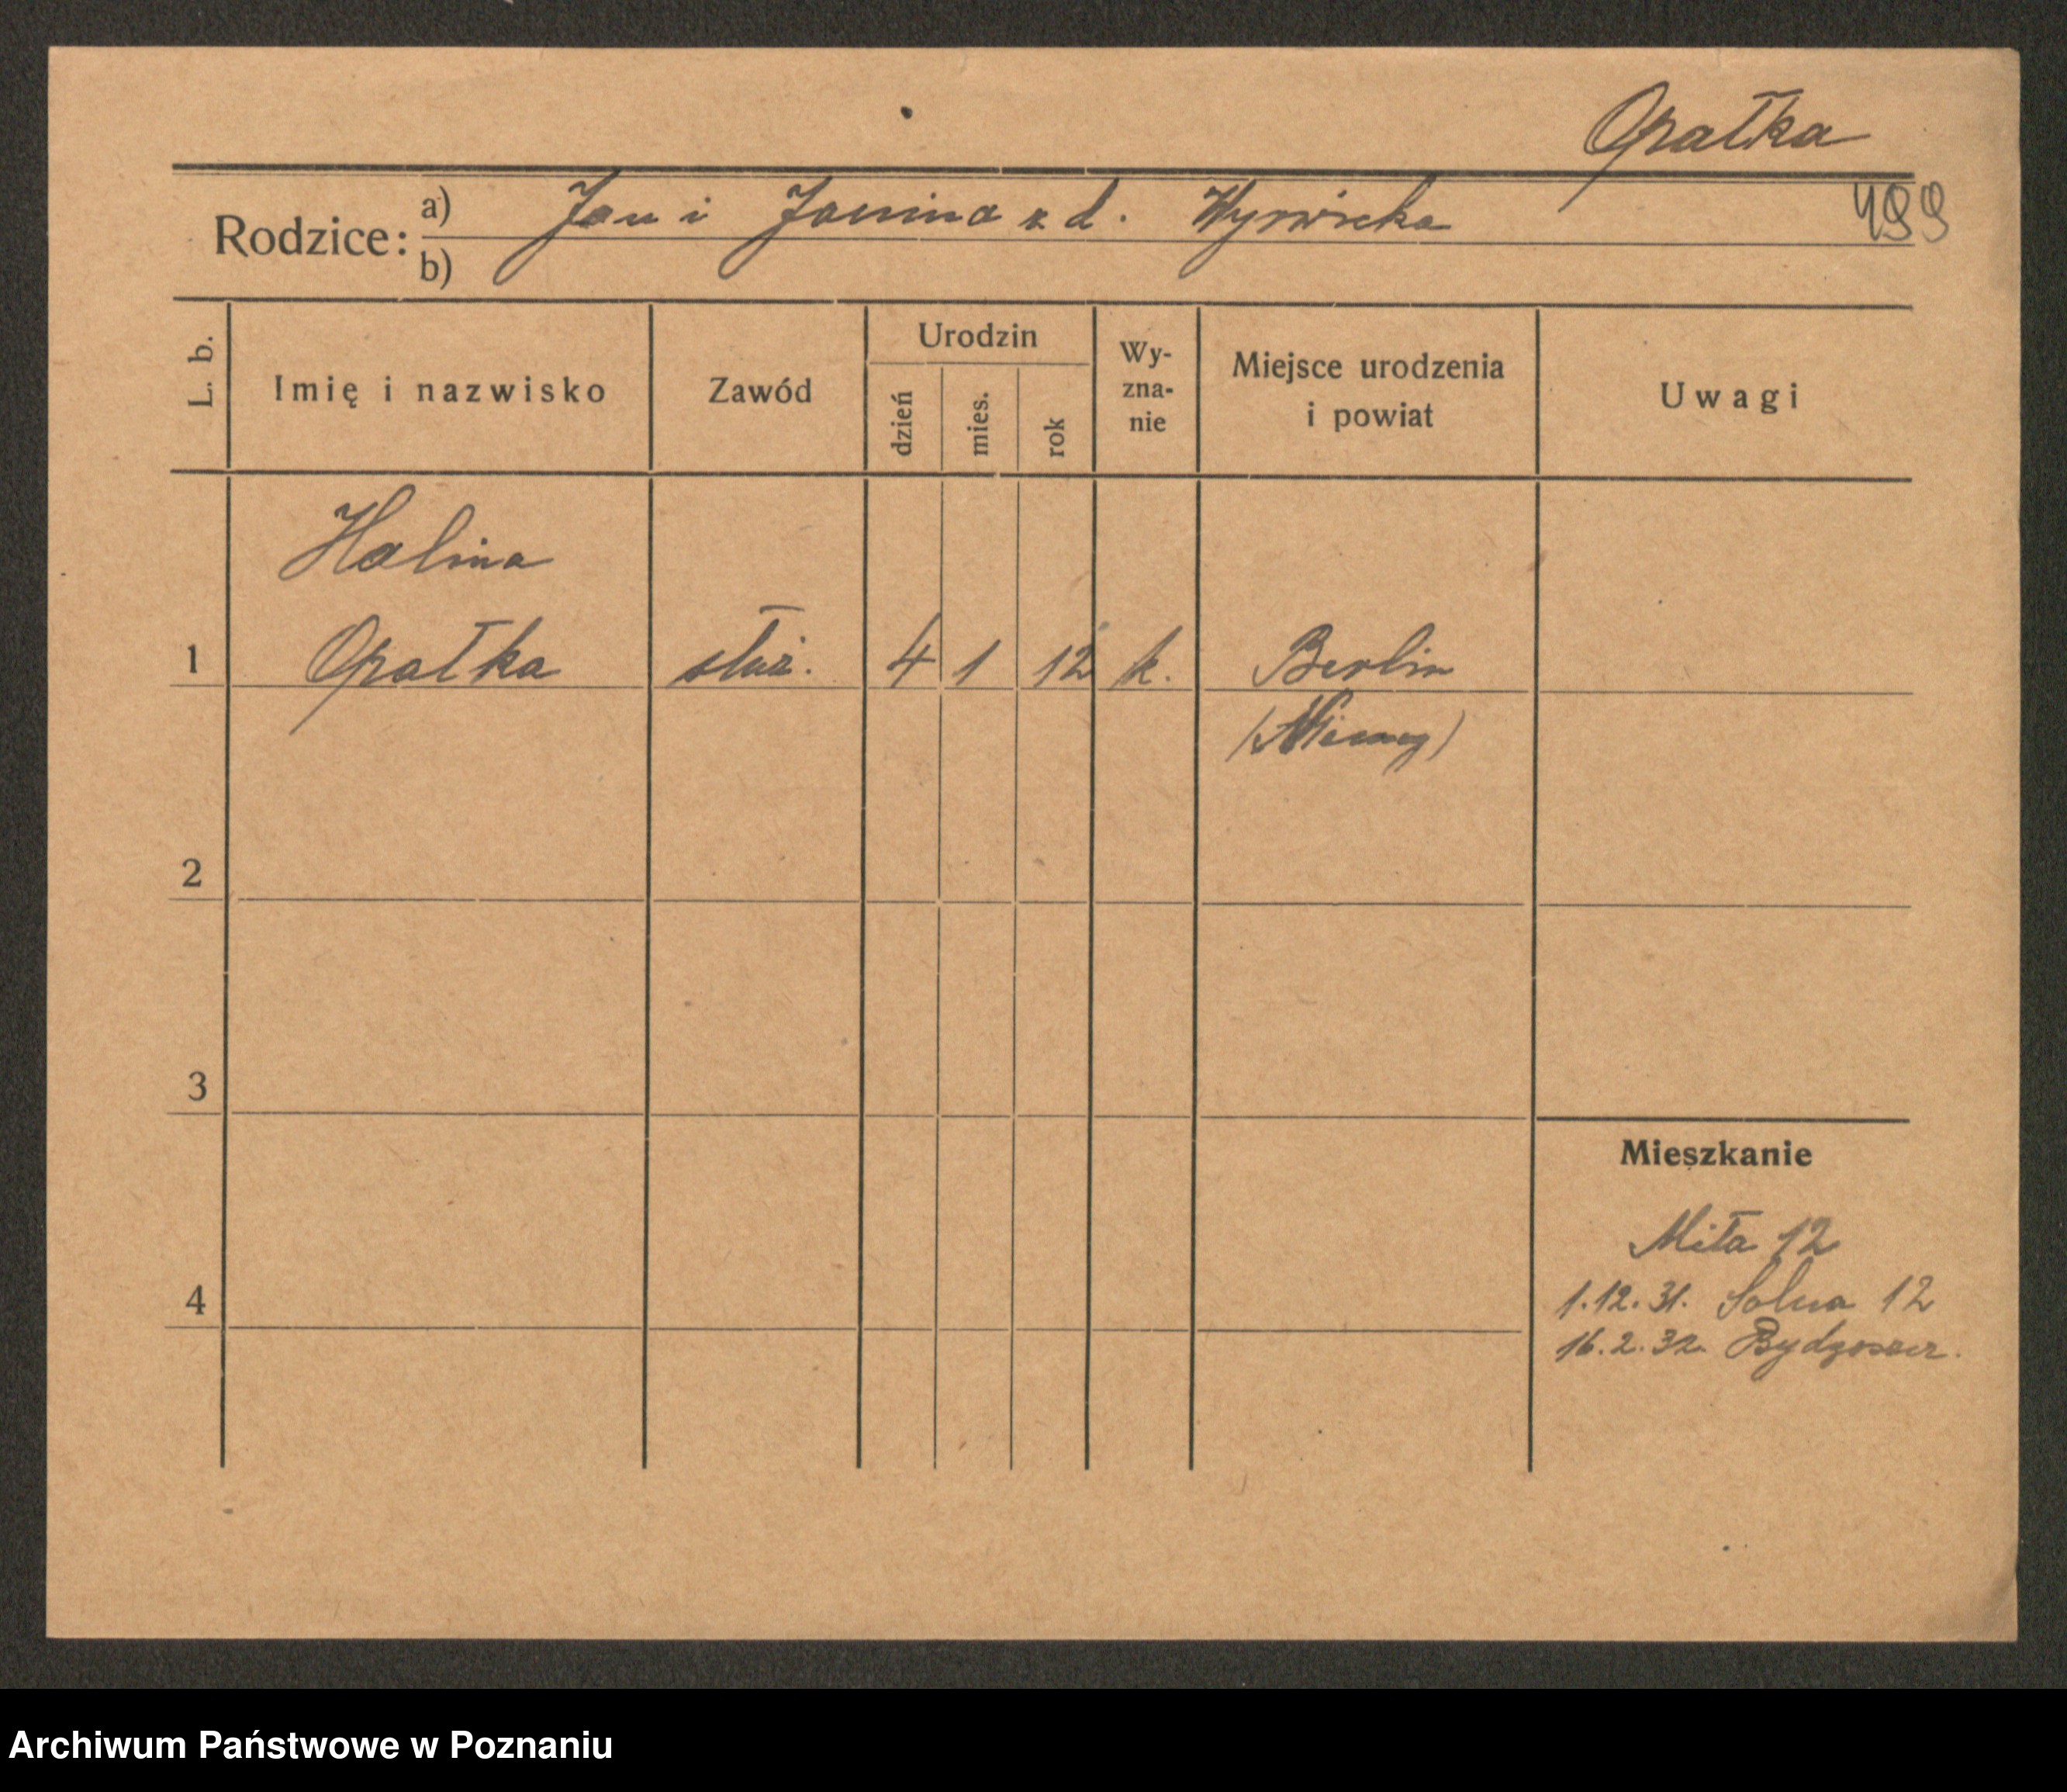 Opałka
Rodzice: a) Jan i Janina z d.
499
b)
L. b.
Imię i nazwisko
Zawód
Urodzin
dzień
mies.
rok
Wy-
zna-
nie
Miejsce urodzenia
i powiat
Uwagi
Halina
1 Opałka służ. 4 1 12 k. Berlin
(Niemcy)
2
3
Mieszkanie
Miła 12
4
1.12.31. Solna 12
16.2.32. Bydgoszcz.
Archiwum Państwowe w Poznaniu